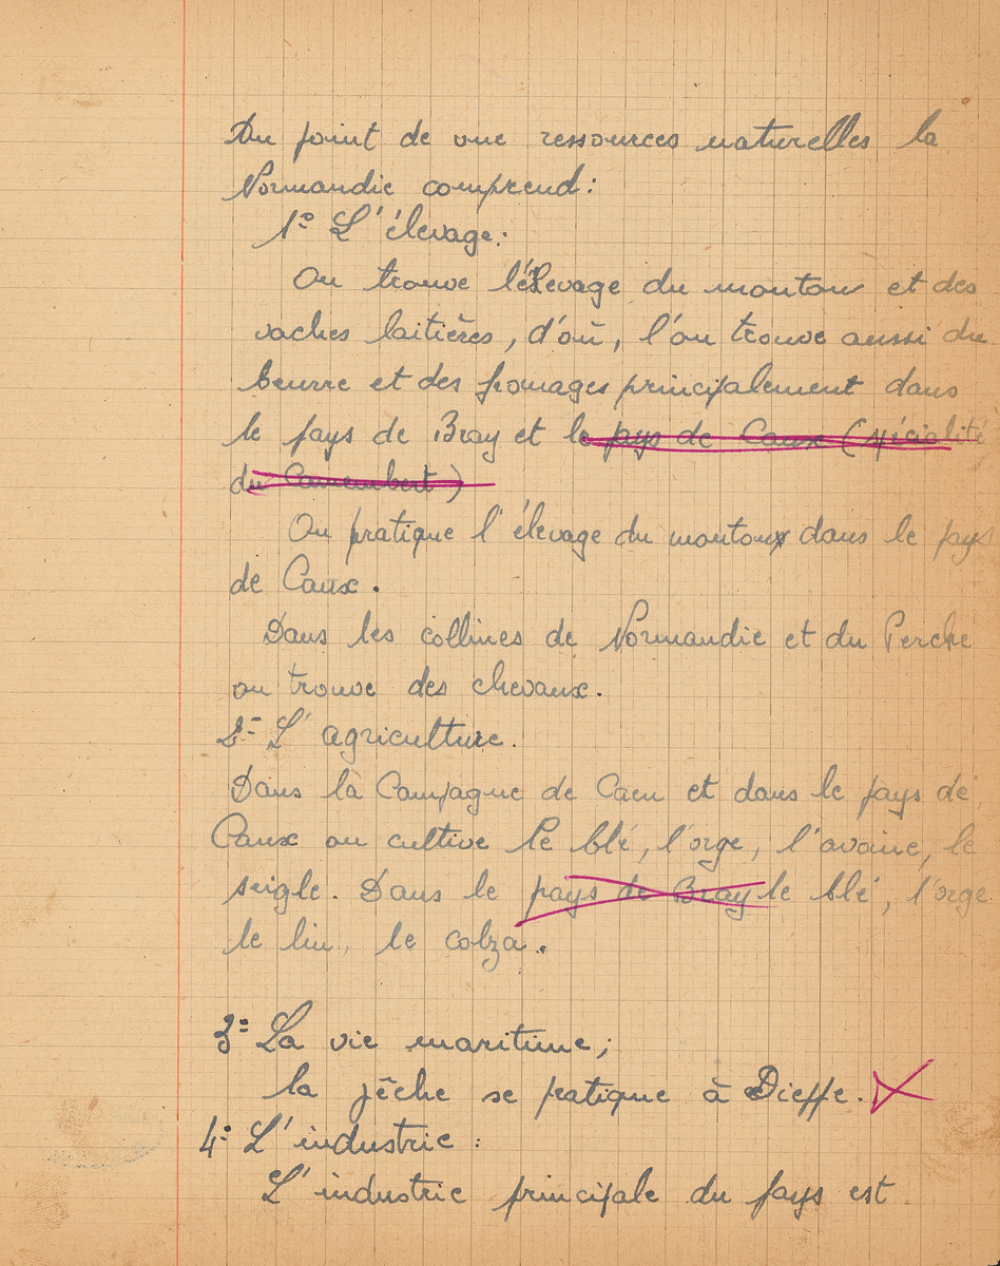 Au point de vue ressources naturelles la
Normandie comprend:
1º L'élevage:
On trouve l'élevage du mouton et des
vaches laitières, d'où, l'on trouve aussi du
beurre et des fromages principalement dans
le pays de Bray et le pays de Caux (spécialité
du Camembert)
On pratique l'élevage du moutonx dans le pays
de Caux.
Dans les collines de Normandie et du Perche
on trouve des chevaux.
2º L'agriculture.
Dans la Campagne de Caen et dans le pays de
Caux on cultive le blé, l'orge, l'avoine, le
seigle. Dans le pays de Bray le blé, l'orge
le lin, le colza.
3º La vie maritime;
la pêche se pratique à Dieppe.
4º L'industrie:
L'industrie principale du pays est